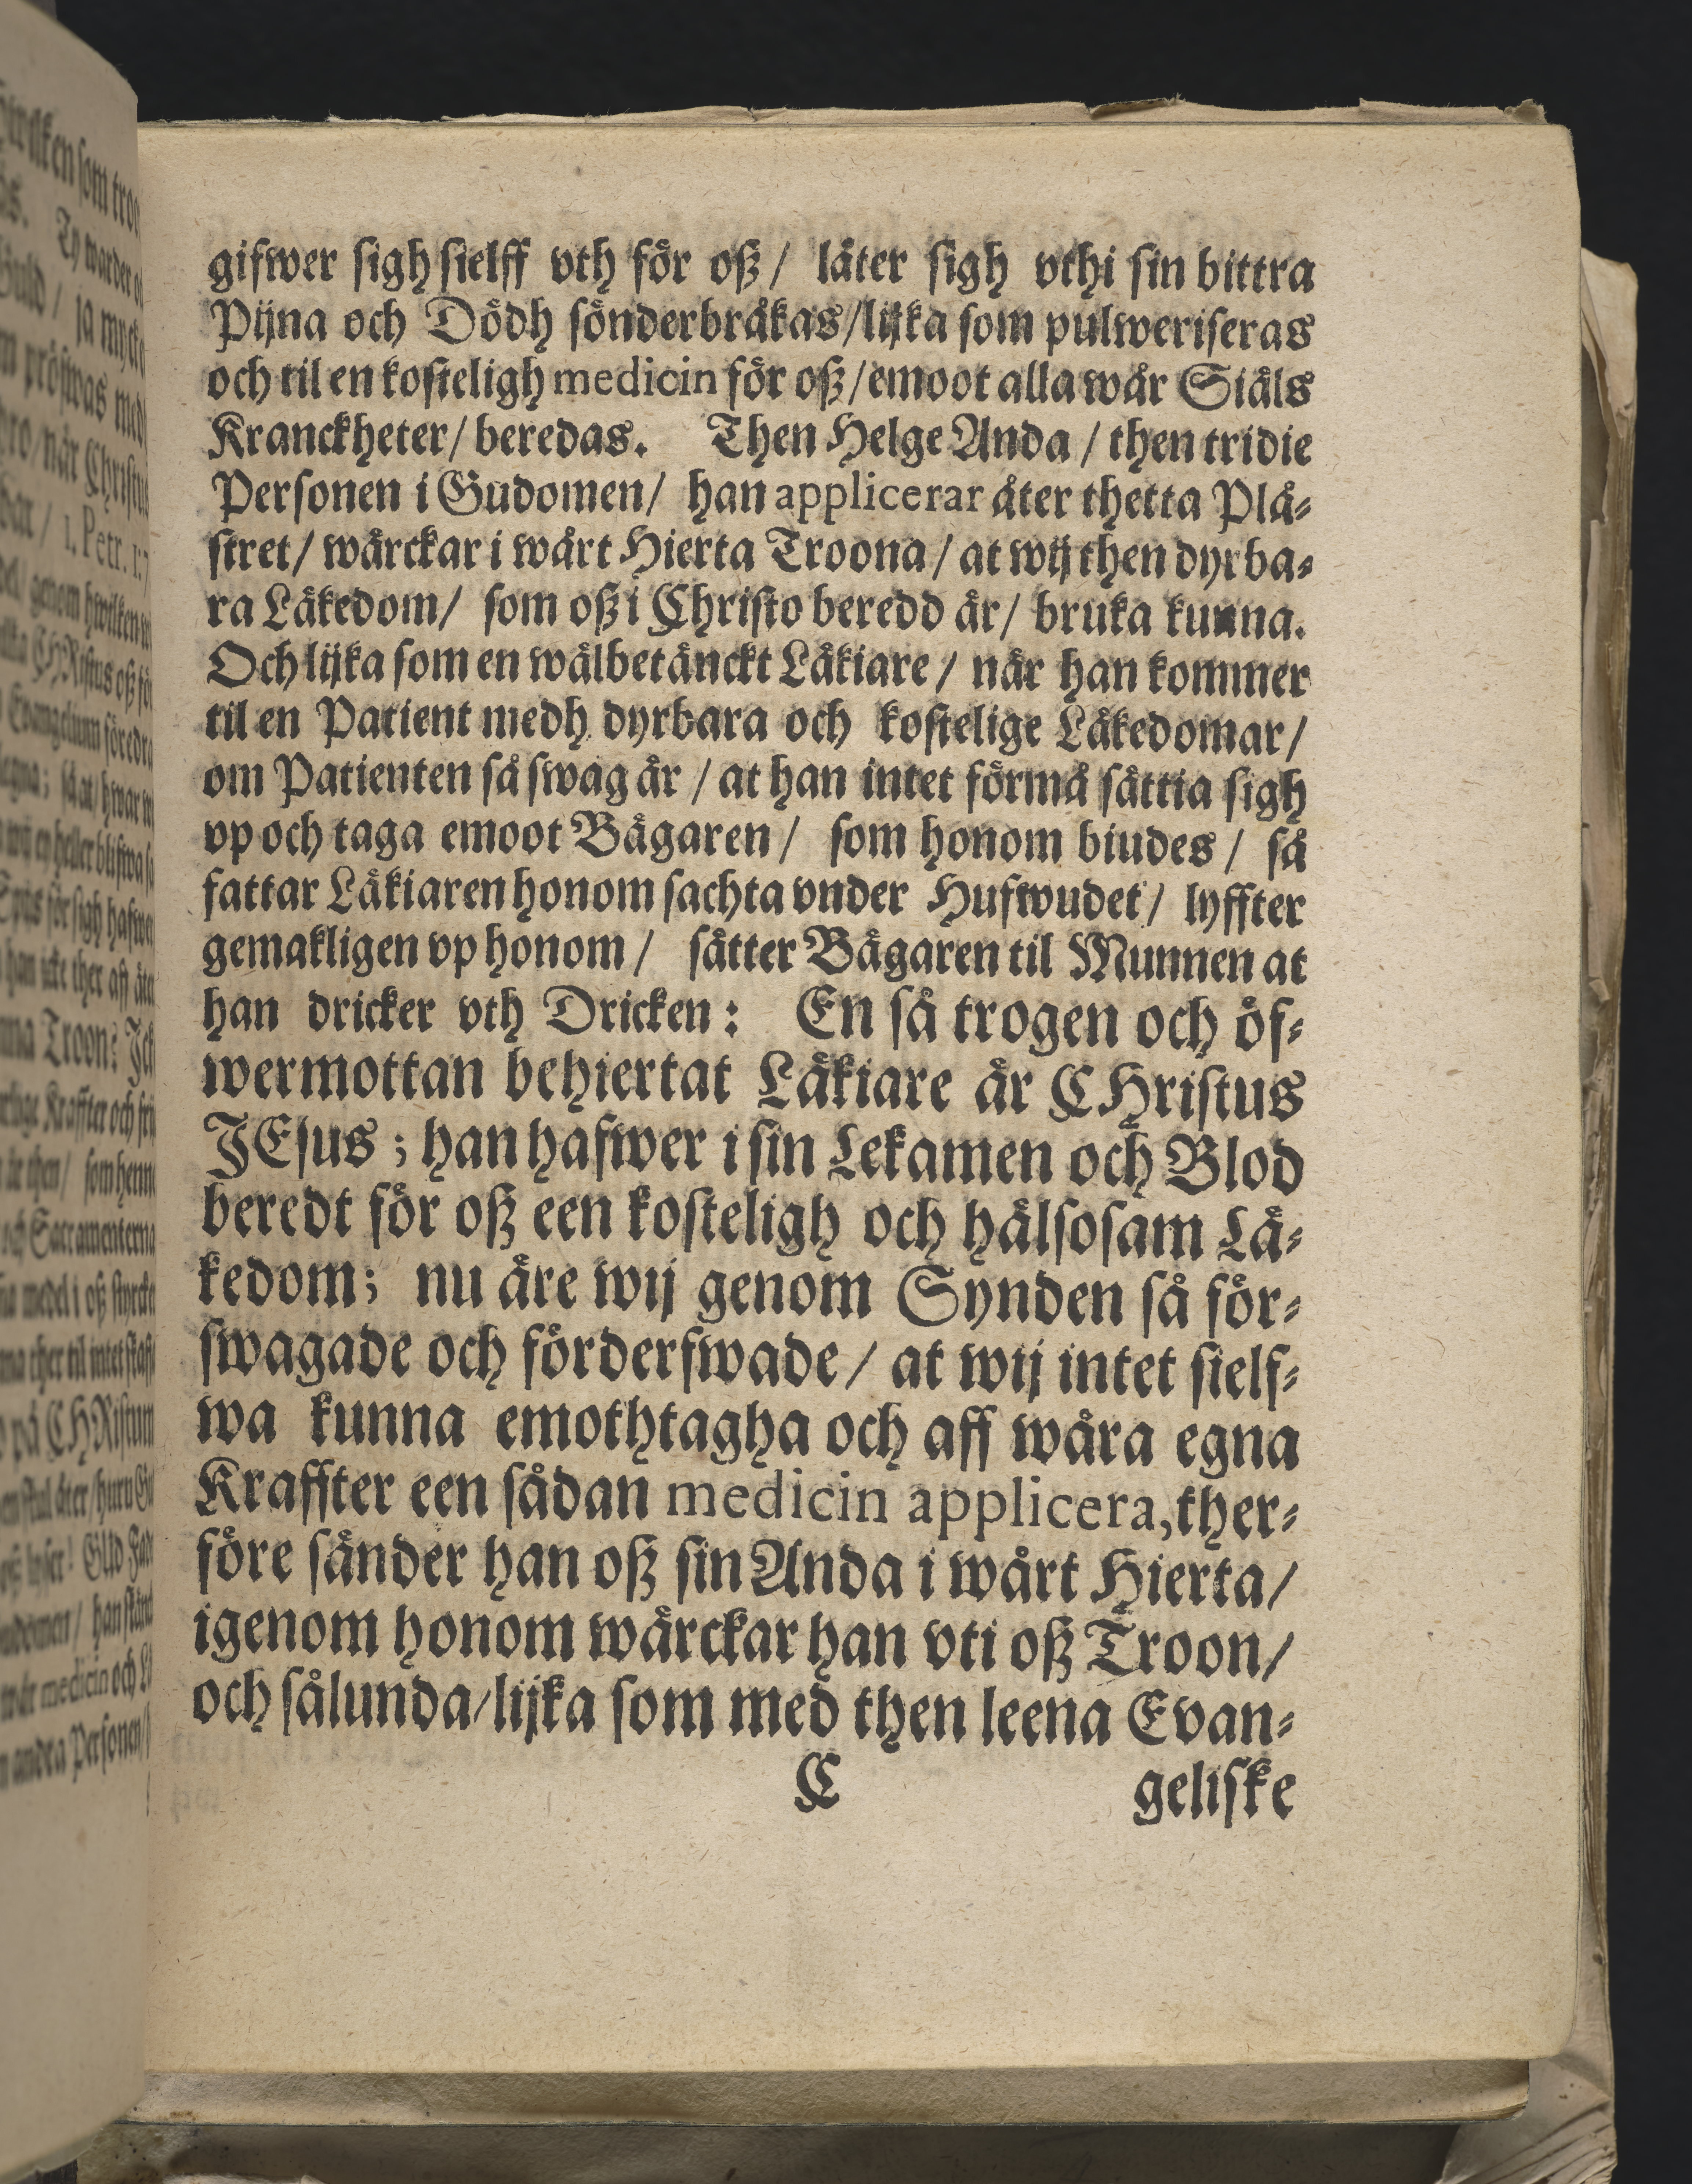 gifwer sigh sielff vth för oß / låter sigh vthi sin bittra
Pijna och Dödh sönderbråkas/lijka som pulweriseras
och til en kosteligh medicin för oß/emoot alla wår Siäls
Kranckheter/ beredas. Then Helge Anda / then tridie
Personen i Gudomen/ han applicerar åter thetta Plå-
stret/ wärckar i wårt Hierta Troona / at wij then dyrba-
ra Läkedom/ som oß i Christo beredd är/ bruka kunna.
Och lijka som en wälbetänckt Läkiare / när han kommer
til en Patient medh dyrbara och kostelige Läkedomar/
om Patienten så swag är / at han intet förmå sättia sigh
vp och taga emoot Bägaren / som honom biudes / så
fattar Läkiaren honom sachta vnder Hufwudet / lyffter
gemakligen vp honom / sätter Bägaren til Munnen at
han dricker vth Dricken : En så trogen och öf-
wermottan behiertat Läkiare är CHristus
JEsus ; han hafwer i sin Lekamen och Blod
beredt för oß een kosteligh och hälsosam Lä-
kedom; nu äre wij genom Synden så för-
swagade och förderfwade / at wij intet sielf-
wa kunna emothtagha och aff wåra egna
Kraffter een sådan medicin applicera, ther-
före sänder han oß sin Anda i wårt Hierta/
igenom honom wärckar han vti oß Troon/
och sålunda/lijka som med then leena Evan-
C geliske